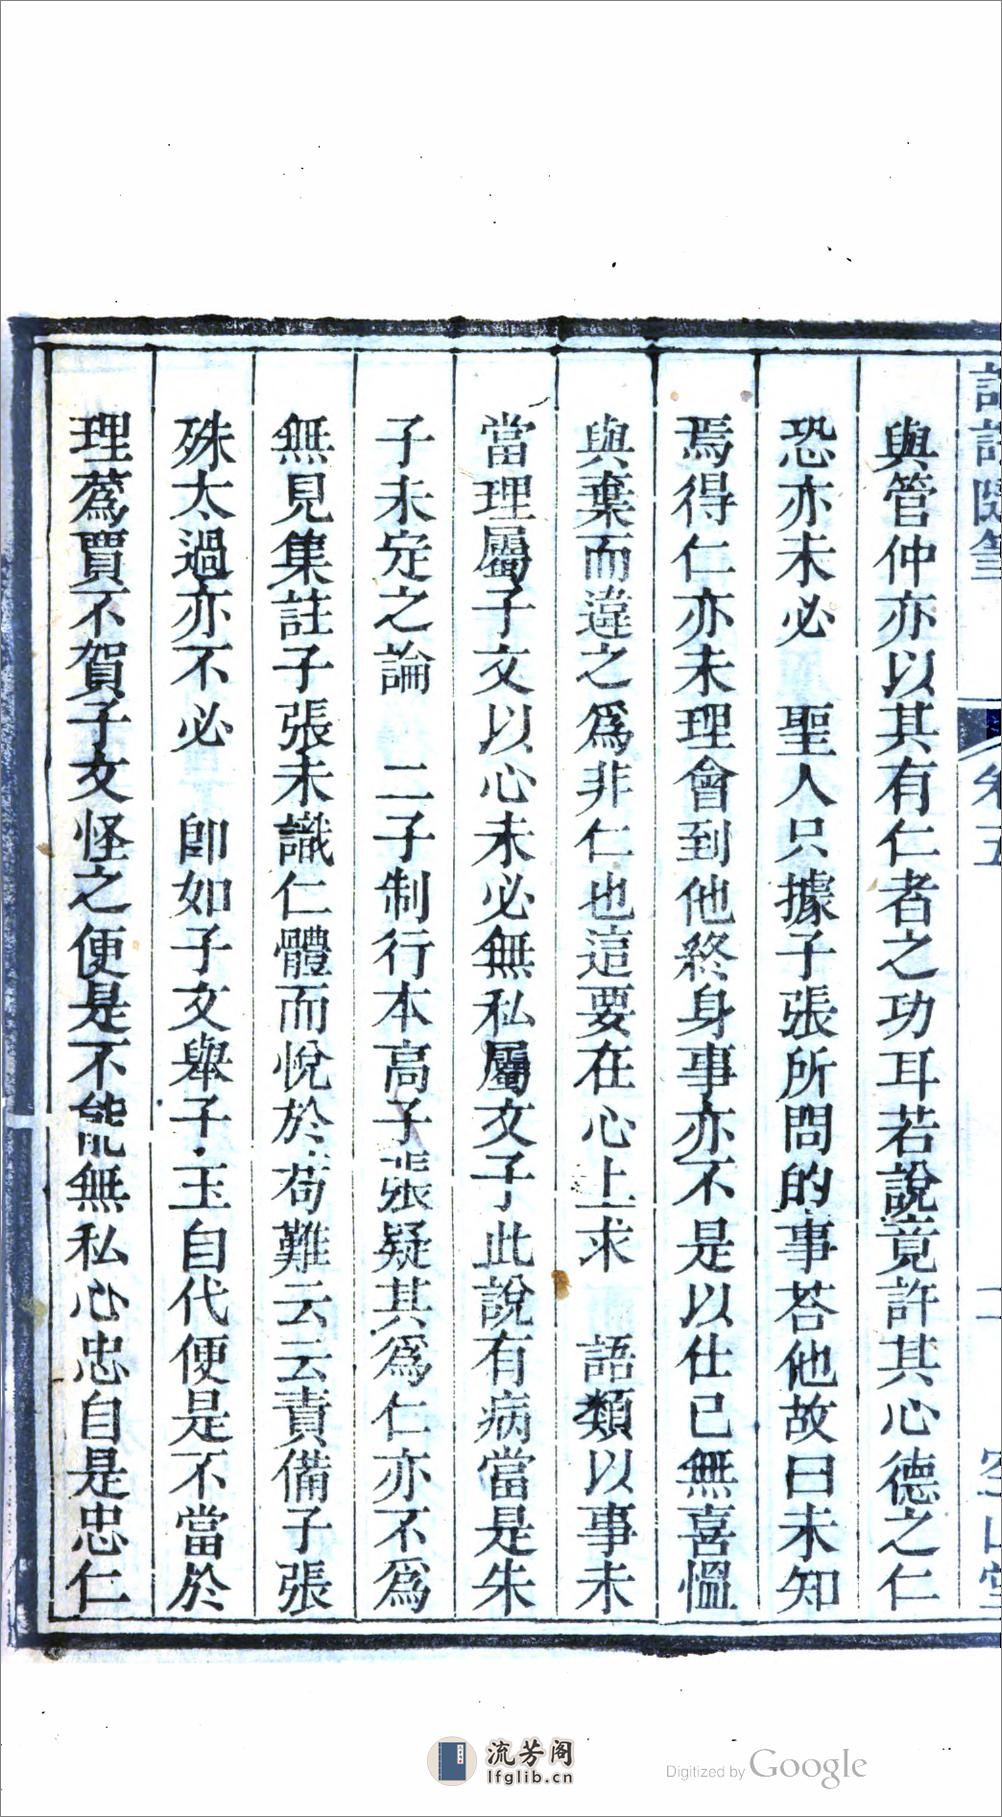 與管仲亦以其有仁者之功耳若說竟許其心德之仁
恐亦未必　聖人只據子張所問的事荅他故曰未知
焉得仁亦未理會到他終身事亦不是以仕已無喜慍
與棄而違之爲非仁也這要在心上求　語類以事未
當理屬子文以心未必無私屬文子此說有病當是朱
子未定之論　二子制行本高子張疑其爲仁亦不爲
無見集註子張未識仁體而悅於苟難云云責備子張
殊太過亦不必　卽如子文舉子玉自代便是不當於
理蔿賈不賀子文怪之便是不能無私心忠自是忠仁
流芳阁
lfglib.cn
Digitized by Google